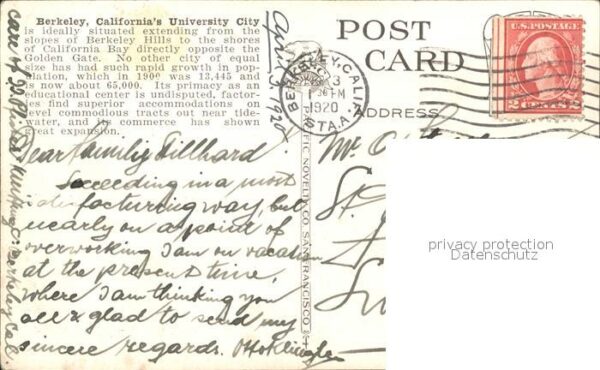 Berkeley, California's University City
is ideally situated extending from the
slopes of Berkeley Hills to the shores
of California Bay directly opposite the
Golden Gate. No other city of equal
size has had such rapid growth in pop-
ulation, which in 1900 was 13,445 and
is now about 65,000. Its primacy as an
educational center is undisputed, factor-
ies find superior accommodations on
level commodious tracts out near tide-
water, and its commerce has shown
great expansion.
April 3, 1920
Dear Family Dillhard!
Succeeding in a most
satisfacturing way, but
nearly on a point of
overworking I am on vacation
at the present time,
where I am thinking you
all & glad to send my
sincere regards.
Berkeley Cal.
PACIFIC NOVELTY CO. SAN FRANCISCO
POST
CARD
ADDRESS
BERKELEY, CALIF.
3
PM
1920
STA. A.
U.S. POSTAGE
2 CENTS 2
Mr.
St.
privacy protection
Datenschutz